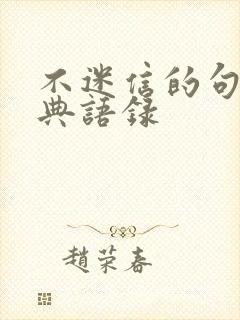 不迷信的句
典語錄
趙荣春